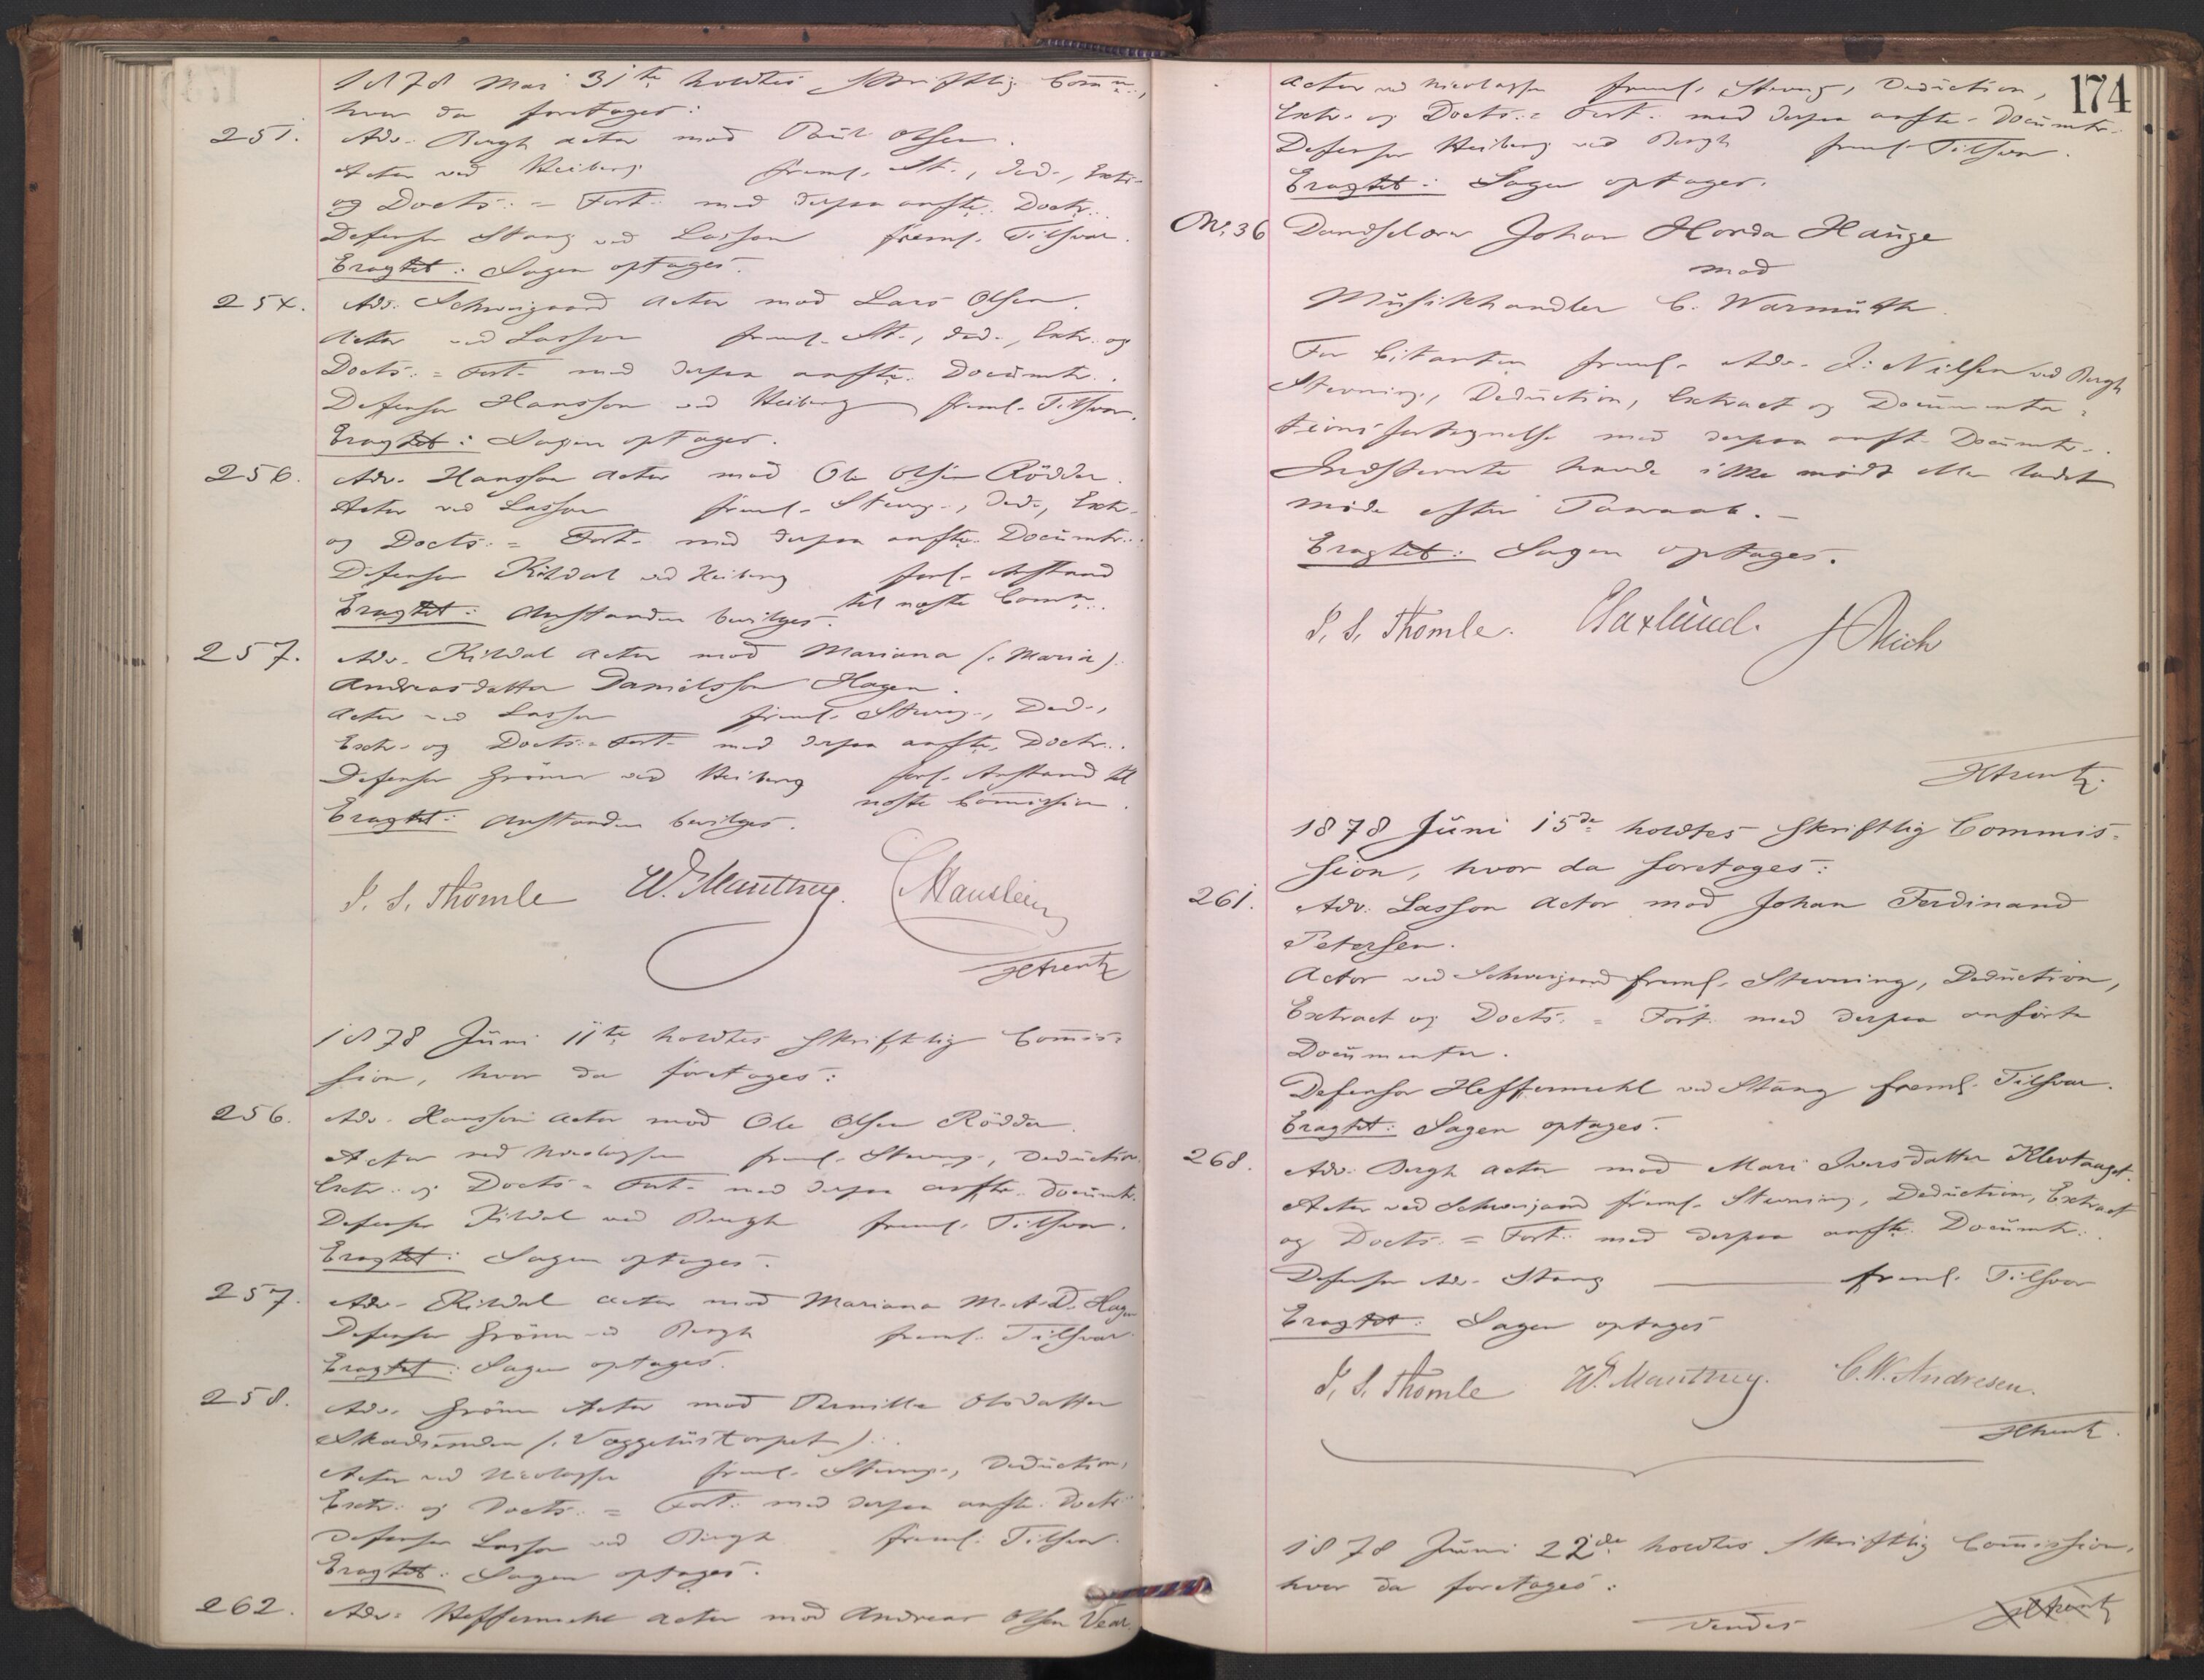 1878 Mai 31te holdtes Skriftlig Comm.,
hvor da foretages:
251. Adv. Bergh Actor mod Poul Olsen.
Actor ved Heiberg freml. St., Ded., Extr.
og Docts.= Fort. med derpaa anførte Doctr..
Defensor Stang ved Lasson freml. Tilsvar.
Eragtet: Sagen optages.
254. Adv. Schweigaard Actor mod Lars Olsen.
Actor ved Lasson freml. St., Ded., Extr. og
Docts.= Fort. med derpaa anførte Documtr..
Defensor Hansson ved Heiberg freml. Tilsvar.
Eragtet: Sagen optages.
256. Adv. Hansson Actor mod Ole Olsen Rödder.
Actor ved Lasson freml. Stevng., Ded., Extr.
og Docts.= Fort. med derpaa anførte Documtr..
Defensor Kildal ved Heiberg forl. Anstand
til næste Comm..
Eragtet: Anstanden bevilges.
257. Adv. Kildal Actor mod Mariana (: Maria)
Andreasdatter Danielssen Hagen.
Actor ved Lasson freml. Stevng., Ded.,
Extr. og Docts.= Fort. med derpaa anførte Doctr..
Defensor Grönn ved Heiberg forl. Anstand til
næste Commission.
Eragtet: Anstanden bevilges.
J. S. Thomle W. Manthey. C Hansteen
HArentz
1878 Juni 11te holdtes Skriftlig Commis=
sion, hvor da foretages:
256. Adv. Hansson Actor mod Ole Olsen Rödder.
Actor ved Nicolaysen freml. Stevng., Deduction
Extr. og Docts.= Fort. med derpaa anførte Documtr.
Defensor Kildal ved Bergh freml. Tilsvar.
Eragtet: Sagen optages.
257. Adv. Kildal Actor mod Mariana M. A. D. Hagen
Defensor Grönn ved Bergh freml. Tilsvar.
Eragtet: Sagen optages.
258. Adv. Grönn Actor mod Pernille Olsdatter
Skadsemden (: Væggelüstorpet).
Actor ved Nicolaysen freml. Stevng., Deduction,
Extr. og Docts.= Fort. med derpaa anførte Doctr.
Defensor Lasson ved Bergh freml. Tilsvar.
Eragtet: Sagen optages.
262. Adv. Heffermehl Actor mod Andreas Olsen Vear.
174
Actor ved Nicolaysen freml. Stevng., Deduction,
Extr. og Docts.= Fort. med derpaa anførte Documtr.
Defensor Heiberg ved Bergh freml. Tilsvar.
Eragtet: Sagen optages.
No. 36 Dandselærer Johan Horda Hauge
mod
Musikhandler C. Warmuth.
For Citanten freml. Adv. J. Nilsen ved Bergh
Stevning, Deduction, Extract og Documenta=
tionsfortegnelse med derpaa anft. Documtr..
Indstevnte havde ikke mödt eller ladet
möde efter Paaraab.-
Eragtet: Sagen optages.
J. S. Thomle. Haxlund. J Mich
HArentz.
1878 Juni 15de holdtes Skriftlig Commis=
sion, hvor da foretages:
261. Adv. Lasson Actor mod Johan Ferdinand
Petersen.
Actor ved Schweigaard freml. Stevning, Deduction,
Extract og Docts.= Fort. med derpaa anførte
Documenter.
Defensor Heffermehl ved Stang freml. Tilsvar.
Eragtet: Sagen optages.
268. Adv. Bergh Actor mod Mari Iversdatter Klevtaaget.
Actor ved Schweigaard freml. Stevning, Deduction, Extract
og Docts.= Fort. med derpaa anførte Documtr..
Defensor Adv. Stang — freml. Tilsvar
Eragtet: Sagen optages
J. S. Thomle W. Manthey. C. W. Andresen.
HArentz.
1878 Juni 22de holdtes Skriftlig Commission,
hvor da foretages:
vendes HArentz